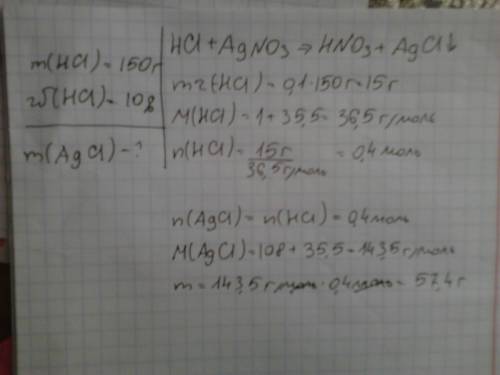 m(HCl) = 150г
ω(HCl) = 10%
m(AgCl) - ?
HCl + AgNO₃ ⇒ HNO₃ + AgCl↓
mг(HCl) = 0,1·150г = 15г
M(HCl) = 1 + 35,5 = 36,5 г/моль
n(HCl) = 15г / 36,5г/моль = 0,4 моль
n(AgCl) = n(HCl) = 0,4 моль
M(AgCl) = 108 + 35,5 = 143,5 г/моль
m = 143,5 г/моль · 0,4 моль = 57,4 г